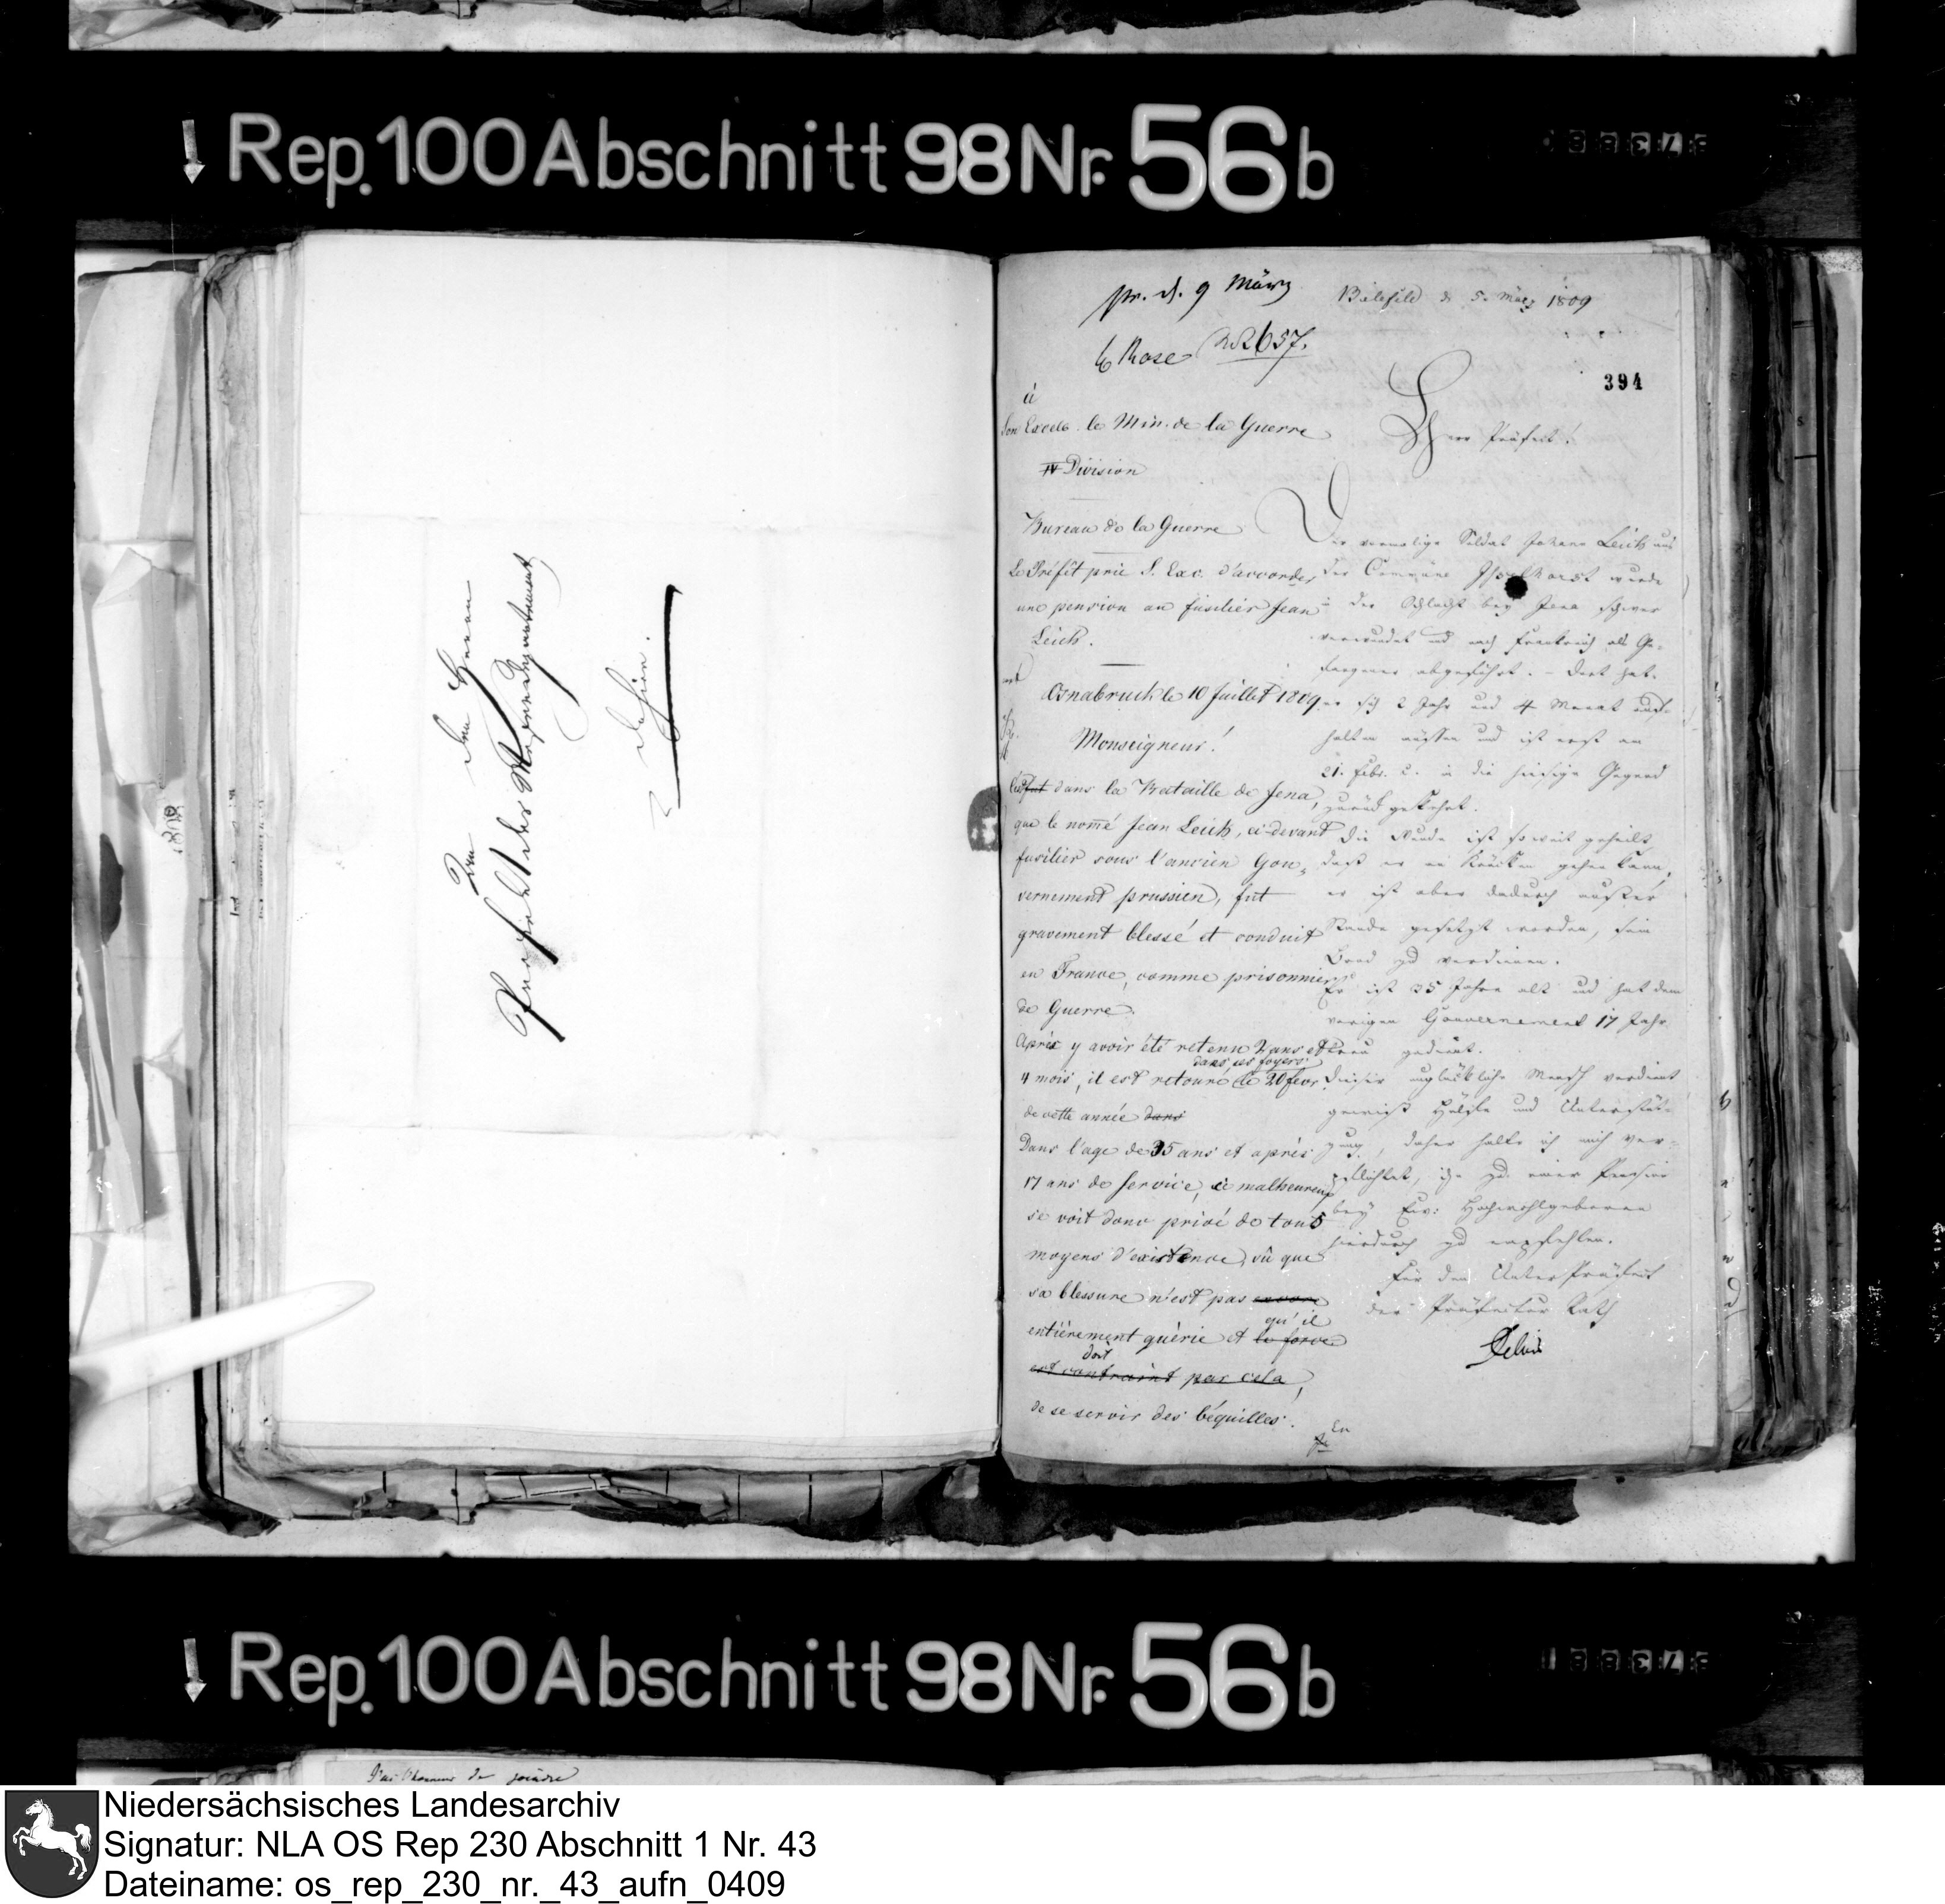 Rep. 100 Abschnitt 98 Nr. 56b
Dem Herrn
Praefekt des Weserdepartement
dahier.
pr. d. 9 März
Bielefeld d. 5. März 1809
Rose 2657.
394
à
Son Excell. le Min. de la Guerre
IV Division
Bureau de la Guerre
Le Préfêt prie S. Exc. d'accorder
une pension au fusilier Jean
Leich.
Osnabruck le 10 Juillet 1809
Monseigneur!
fut dans la Bataille de Jena,
que le nomé Jean Leich, ci-devant
fusilier sous l'ancien Gou-
vernement prussien, fut
gravement blessé et conduit
en France, comme prisonnier
de Guerre.
Après y avoir été retenu 2 ans et
dans ses foyers
4 mois, il est retourné le 20 fevr
de cette année dans
Dans l'age de 35 ans et après
17 ans de service, ce malheureux
se voit donc privé de tous
moyens d'existence, vû que
sa blessure n'est pas encore
qu'il
entièrement guèrie et le force
doit
est contraint par cela,
de se servir des béquilles.
En
Herr Präfect!
Der vormalige Soldat Johann Leich aus
der Commune Isselhorst wurde
in der Schlacht bey Jena schwer
verwundet und nach Frankreich als Ge-
fangener abgeführt. - Dort hat
er sich 2 Jahr und 4 Monat auf-
halten müssen und ist erst am
21. Febr. c. in die hiesige Gegend
zurück gekehrt.
Die Wunde ist so weit geheilt,
daß er an Krücken gehen kann,
er ist aber dadurch außer
Stande gesetzt worden, sein
Brod zu verdienen.
Er ist 35 Jahre alt und hat dem
vorigen Gouvernement 17 Jahr
treu gedient.
Dieser unglückliche Mensch verdient
gewiß Hülfe und Unterstüt-
zung, daher halte ich mich ver-
pflichtet, ihn zu einer Pension
bey Euv: Hochwohlgeboren
hierdurch zu empfehlen.
Für den Unter Präfect
der Präfectur Rath
Delius
Rep. 100 Abschnitt 98 Nr. 56b
J'ai l'honneur de joindre
Niedersächsisches Landesarchiv
Signatur: NLA OS Rep 230 Abschnitt 1 Nr. 43
Dateiname: os_rep_230_nr._43_aufn_0409